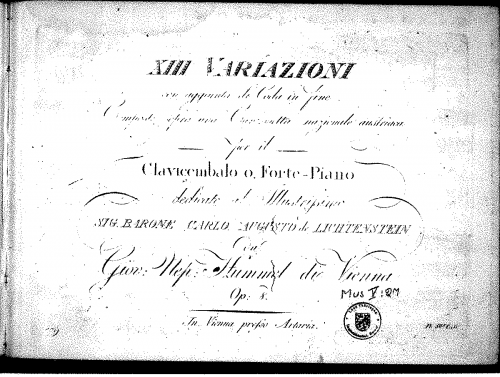 XIII VARIAZIONI
con aggiunta di Coda in fine
Composte sopra una Canzonetta nazionale austriaca
per il
Clavicembalo o Forte-Piano
dedicate al Illustrissimo
SIG. BARONE CARLO AUGUSTO de LICHTENSTEIN
Da
Giov: Nep: Hummel di Vienna
Op: 8.
Mus V: 27
In Vienna presso Artaria.